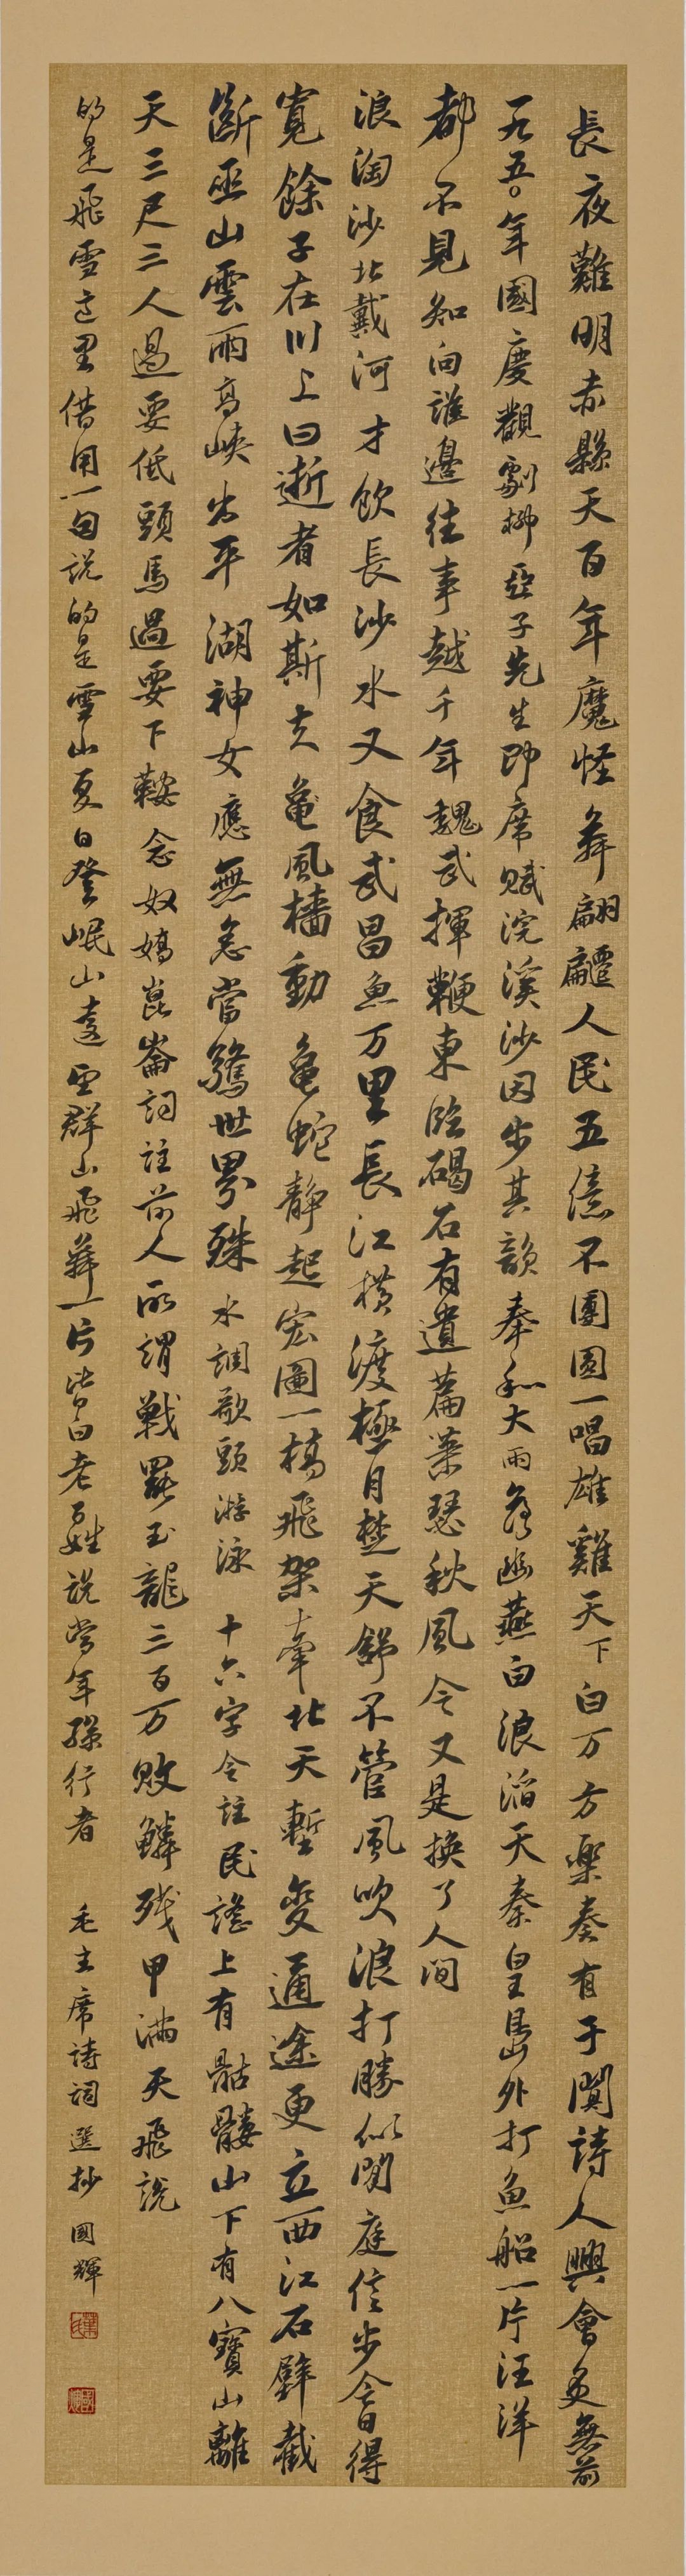 長夜難明赤縣天百年魔怪舞翩躚人民五億不團圓一唱雄雞天下白万方樂奏有于闐詩人興會更無前
一九五〇年國慶觀劇柳亞子先生即席賦浣溪沙因步其韻奉和大雨落幽燕白浪滔天秦皇島外打魚船一片汪洋
都不見知向誰邊往事越千年魏武揮鞭東臨碣石有遺篇蕭瑟秋風今又是換了人间
浪淘沙北戴河才飲長沙水又食武昌魚万里長江横渡極目楚天舒不管風吹浪打勝似閒庭信步今日得
寬餘子在川上曰逝者如斯夫龜風檣動龜蛇静起宏圖一橋飛架牽北天塹變通途更立西江石壁截
斷巫山雲雨高峽出平湖神女應無恙當驚世界殊水調歌頭游泳十六字令註民謠上有骷髏山下有八寶山離
天三尺三人過要低頭馬過要下鞍念奴嬌崑崙詞註前人所謂戰罷玉龍三百万敗鱗残甲満天飛説
的是飛雪這里借用一句説的是雪山夏日登岷山遠望群山飛舞一片皆白老百姓説當年孫行者毛主席詩詞選抄國輝